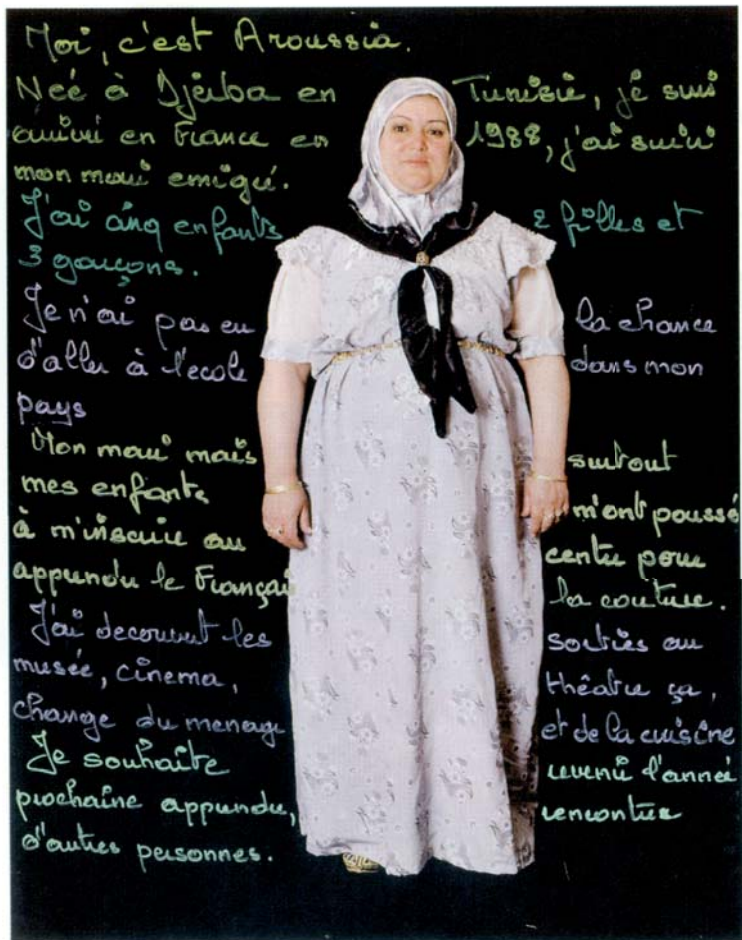 Moi, c'est Aroussia.
Née à Djerba en Tunisie, je suis
arrivé en France en 1988, j'ai suivi
mon mari emigré.
J'ai cinq enfants 2 filles et
3 garçons.
Je n'ai pas eu la chance
d'aller à l'ecole dans mon
pays
Mon mari mais surtout
mes enfants m'ont poussé
à m'inscrire au centre pour
apprendre le Français la couture.
J'ai decouvert les sorties au
musée, cinema, théâtre ça,
change du menage et de la cuisine
Je souhaite revenir l'anneé
prochaine apprendre, rencontrer
d'autres personnes.